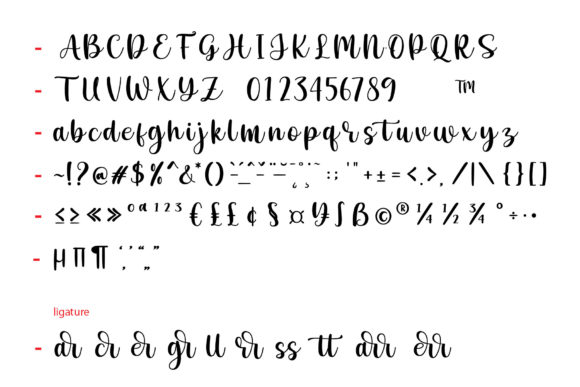 - ABCDEFGHIJKLMNOPQRS
- TUVWXYZ 0123456789 ™
- abcdefghijklmnopqrstuvwxyz
- ~!?@#$%^&*() : ; ' " + ± = < . > , / | \ { } [ ]
- ≤ ≥ « » º ª ¹ ² ³ € £ £ ¢ § ¤ ¥ ʃ ß © ® ¼ ½ ¾ ° ÷ · •
- µ ∏ ¶ ‘ ’ “ ” ‚ „
ligature
- ar cr er gr ll rr ss tt arr err